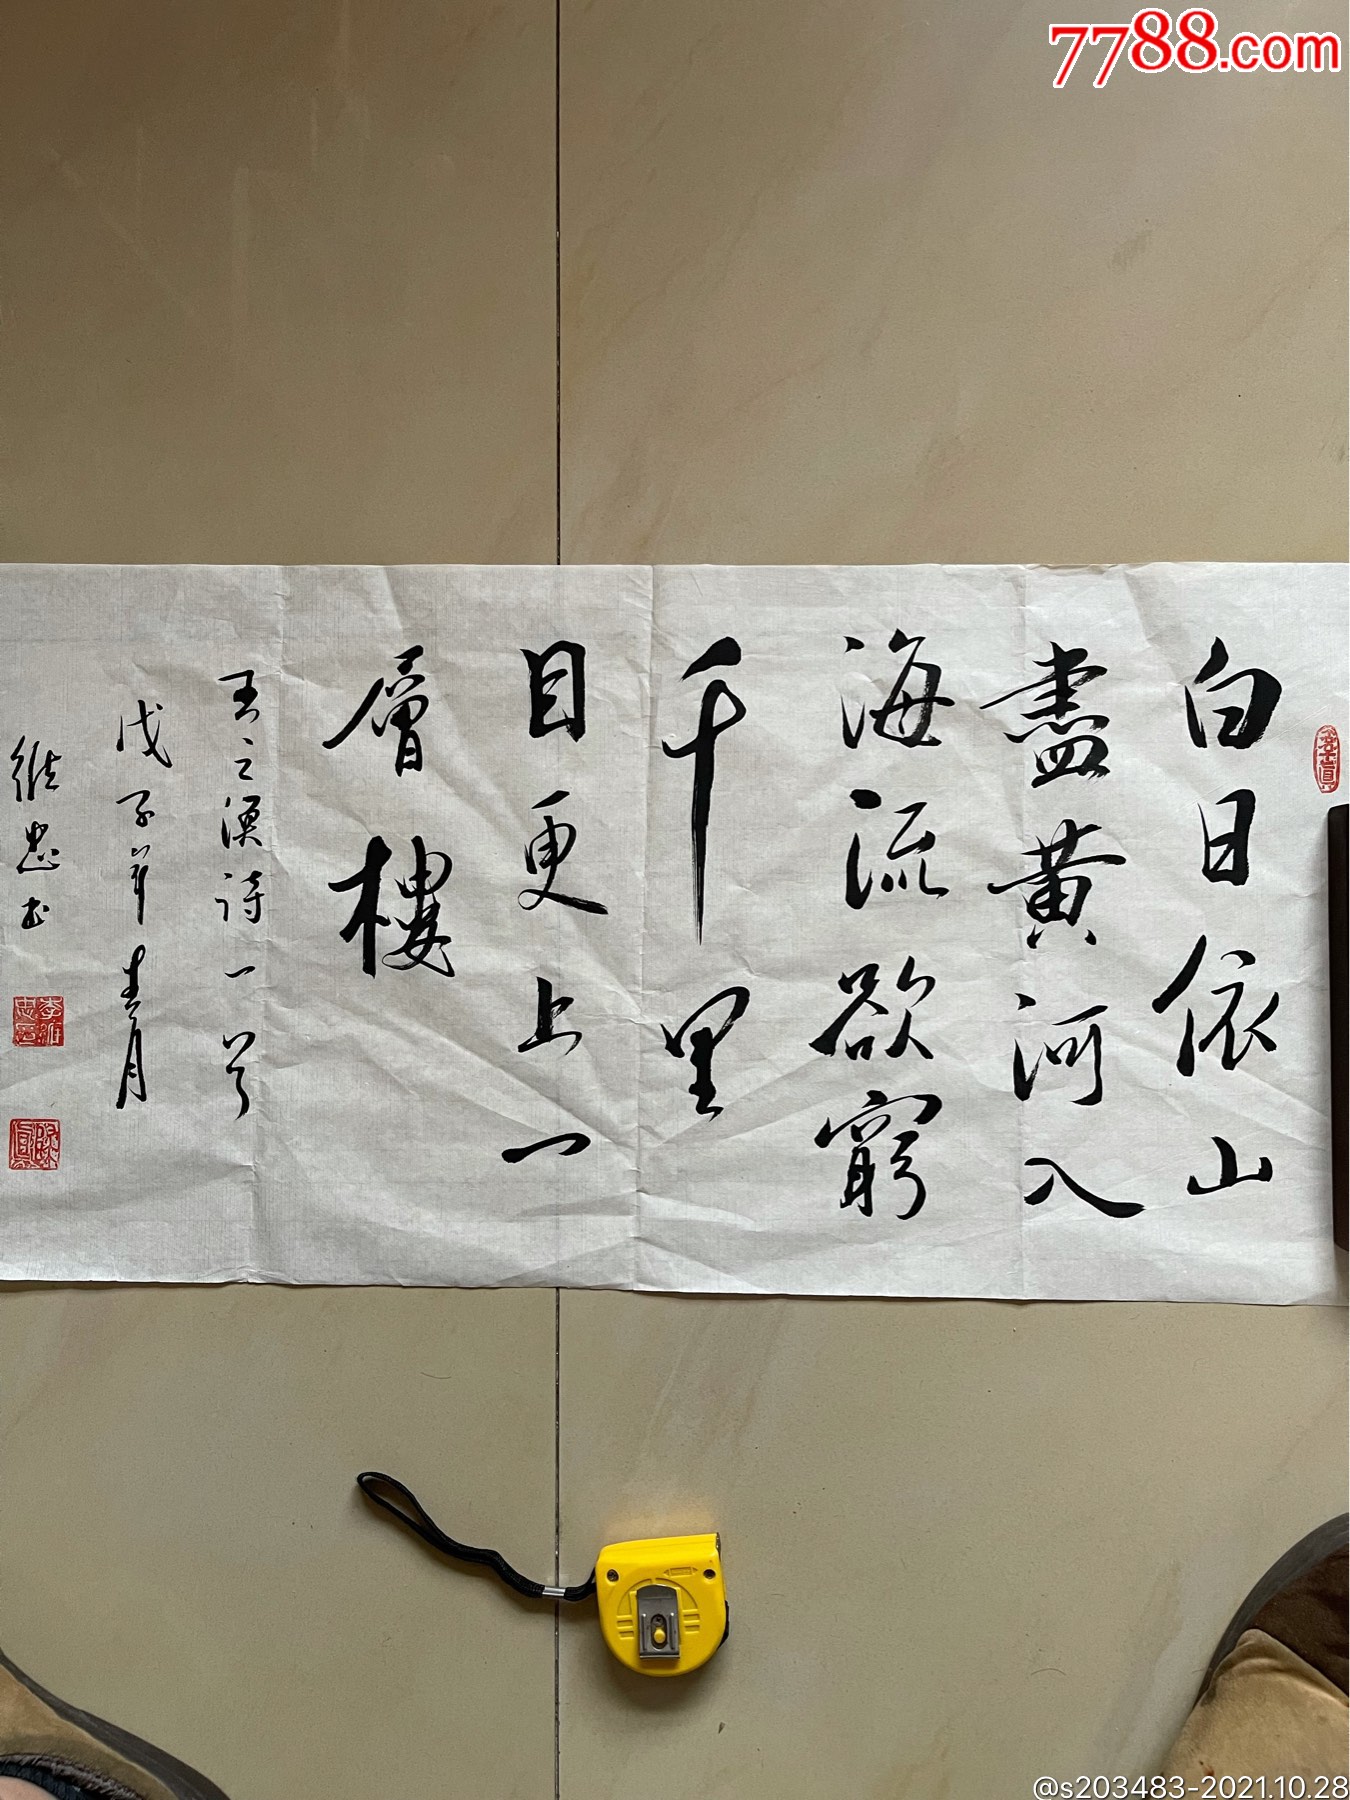 7788.com
白日依山
盡黃河入
海流欲窮
千里
目更上一
層樓
王之渙詩一首
戊子年春月
維忠书
@s203483-2021.10.28